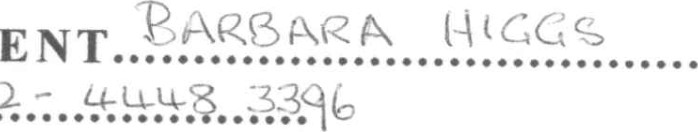 ENT BARBARA HIGGS
2-4448 3396